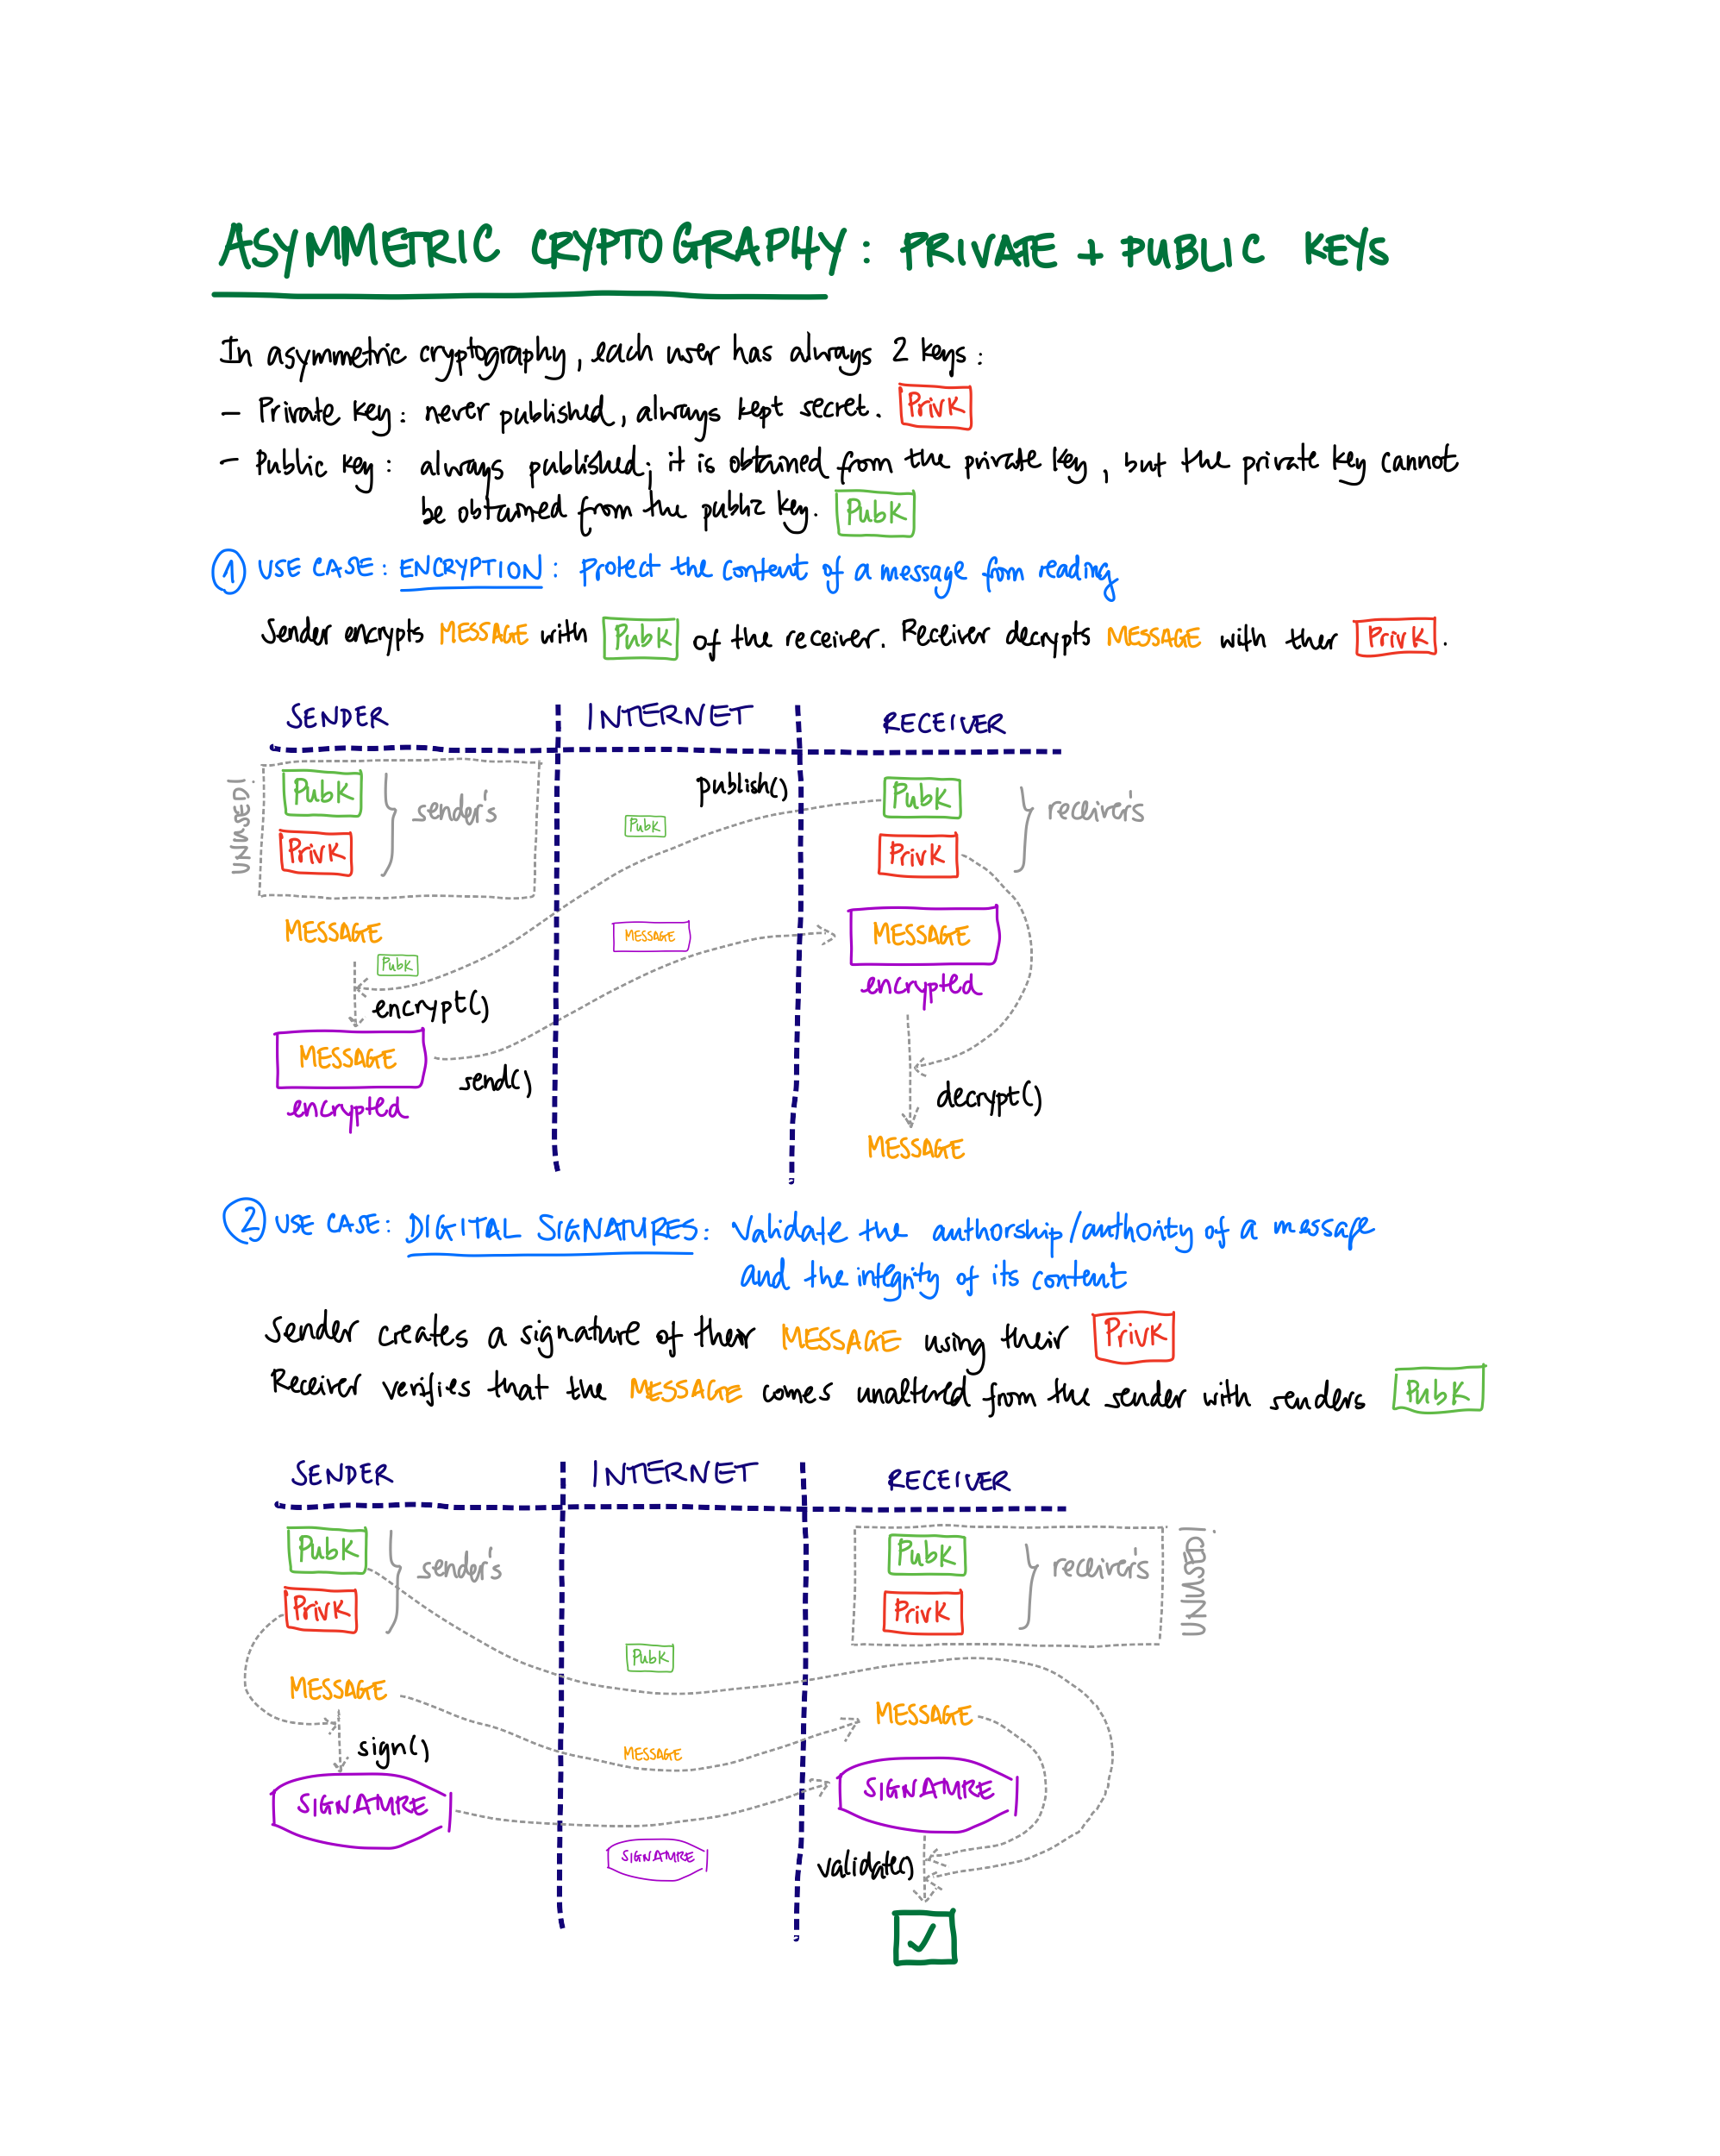 ASYMMETRIC CRYPTOGRAPHY: PRIVATE + PUBLIC KEYS
In asymmetric cryptography, each user has always 2 keys:
- Private key: never published, always kept secret. PrivK
- Public key: always published; it is obtained from the private key, but the private key cannot
be obtained from the public key. PubK
1 USE CASE: ENCRYPTION: Protect the content of a message from reading
Sender encrypts MESSAGE with PubK of the receiver. Receiver decrypts MESSAGE with their PrivK.
SENDER INTERNET RECEIVER
UNUSED!
PubK sender's
PrivK
publish()
PubK
PubK receiver's
PrivK
MESSAGE
PubK
encrypt()
MESSAGE
encrypted
send()
MESSAGE
MESSAGE
encrypted
decrypt()
MESSAGE
2 USE CASE: DIGITAL SIGNATURES: Validate the authorship/authority of a message
and the integrity of its content
Sender creates a signature of their MESSAGE using their PrivK
Receiver verifies that the MESSAGE comes unaltered from the sender with senders PubK
SENDER INTERNET RECEIVER
PubK sender's
PrivK
PubK receiver's
PrivK
UNUSED!
PubK
MESSAGE
sign()
SIGNATURE
MESSAGE
SIGNATURE
MESSAGE
SIGNATURE
validate()